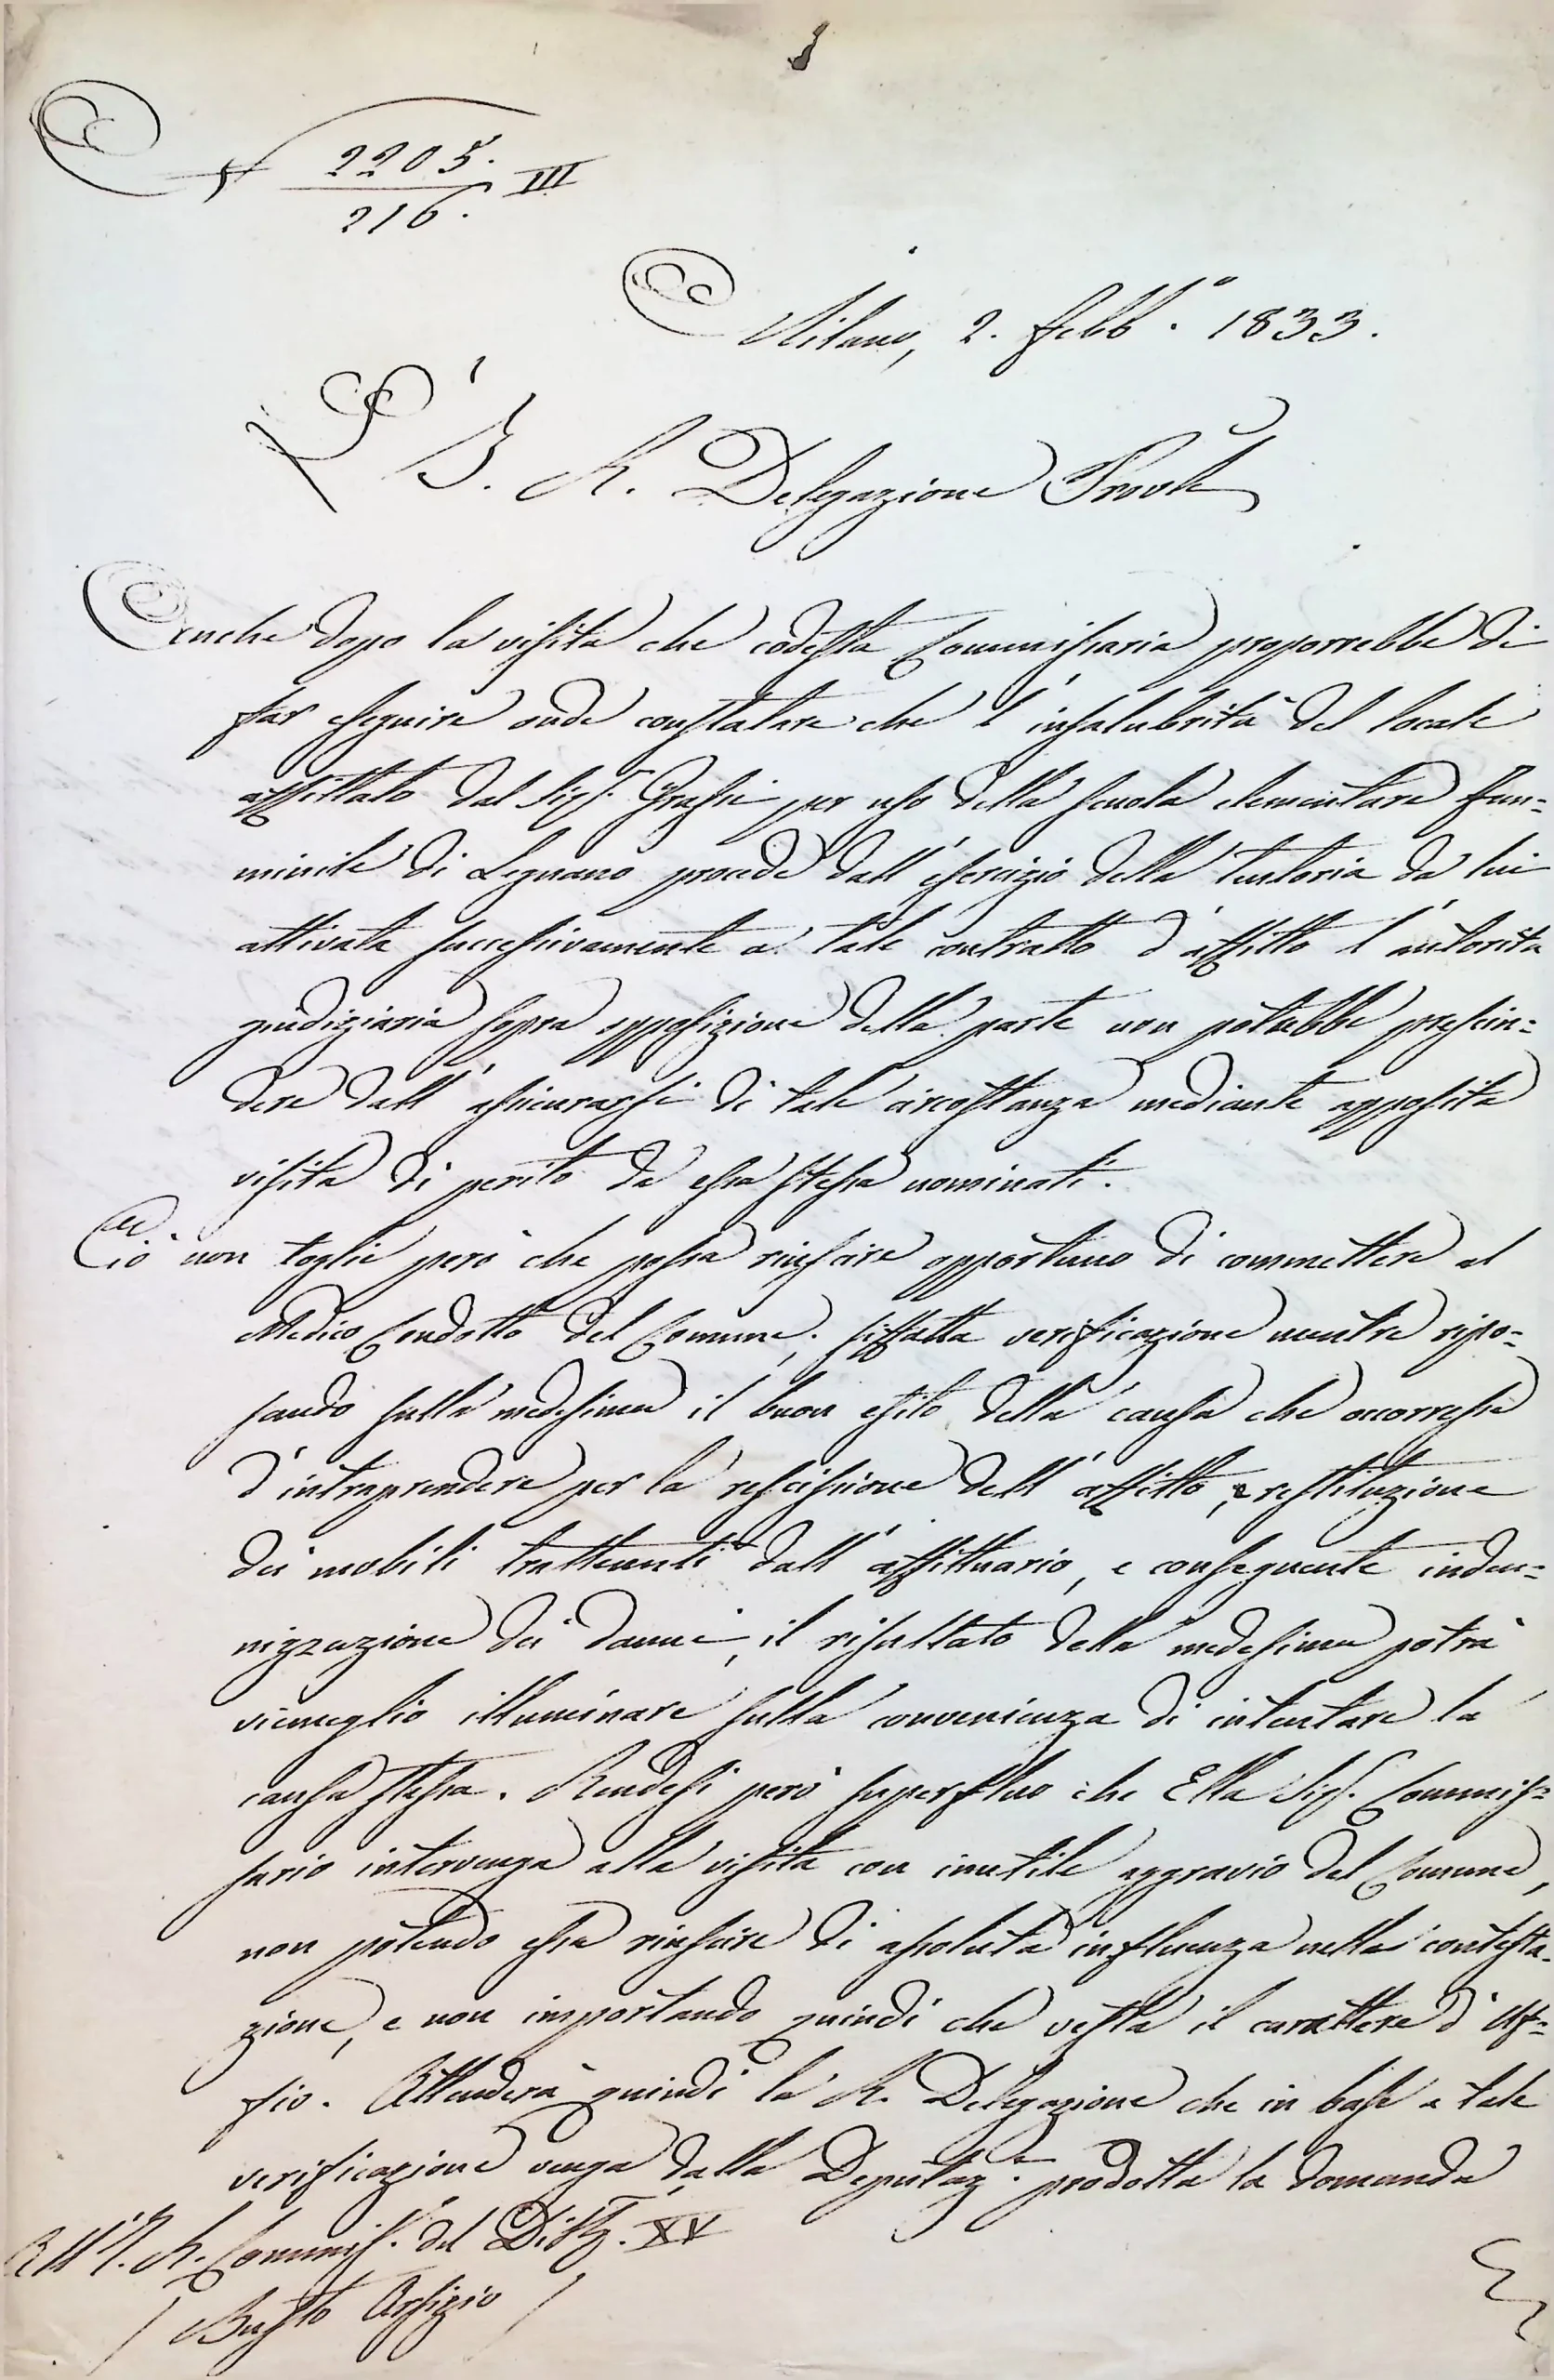 N° 2205. III
216.
Milano, 2. Febb.° 1833.
L' I. R. Delegazione Prov.le
Anche dopo la visita che codesta Commissaria proporrebbe di
far eseguire onde constatare che l'insalubrità del locale
affittato dal Sig.r Grassi per uso della scuola elementare fem=
minile di Legnano procede dall'esercizio della tintoria da lui
attivata successivamente a tale contratto d'affitto l'autorità
giudiziaria sopra opposizione della parte non potrebbe prescin=
dere dall'assicurarsi di tale circostanza mediante apposita
visita di periti da essa stessa nominati.
Ciò non toglie però che possa riuscire opportuno di commettere al
Medico Condotto del Comune, siffatta verificazione mentre ripo=
sando sulla medesima il buon esito della causa che occorresse
d'intraprendere per la rescissione dell'affitto, e restituzione
dei mobili trattenuti dall'affittuario, e conseguente inden=
nizzazione dei danni, il risultato della medesima potrà
viemeglio illuminare sulla convenienza di intentare la
causa stessa. Rendesi però superfluo che Ella Sig.r Commis=
sario intervenga alla visita con inutile aggravio del Comune,
non potendo essa riuscire di assoluta influenza nella contesta=
zione, e non importando quindi che vesta il carattere d'Uf=
fio. Attenderà quindi la R. Delegazione che in base a tale
verificazione venga dalla Deputaz.e prodotta la domanda
All'I. R. Commiss.° del Distr. XV
/ Busto Arsizio /